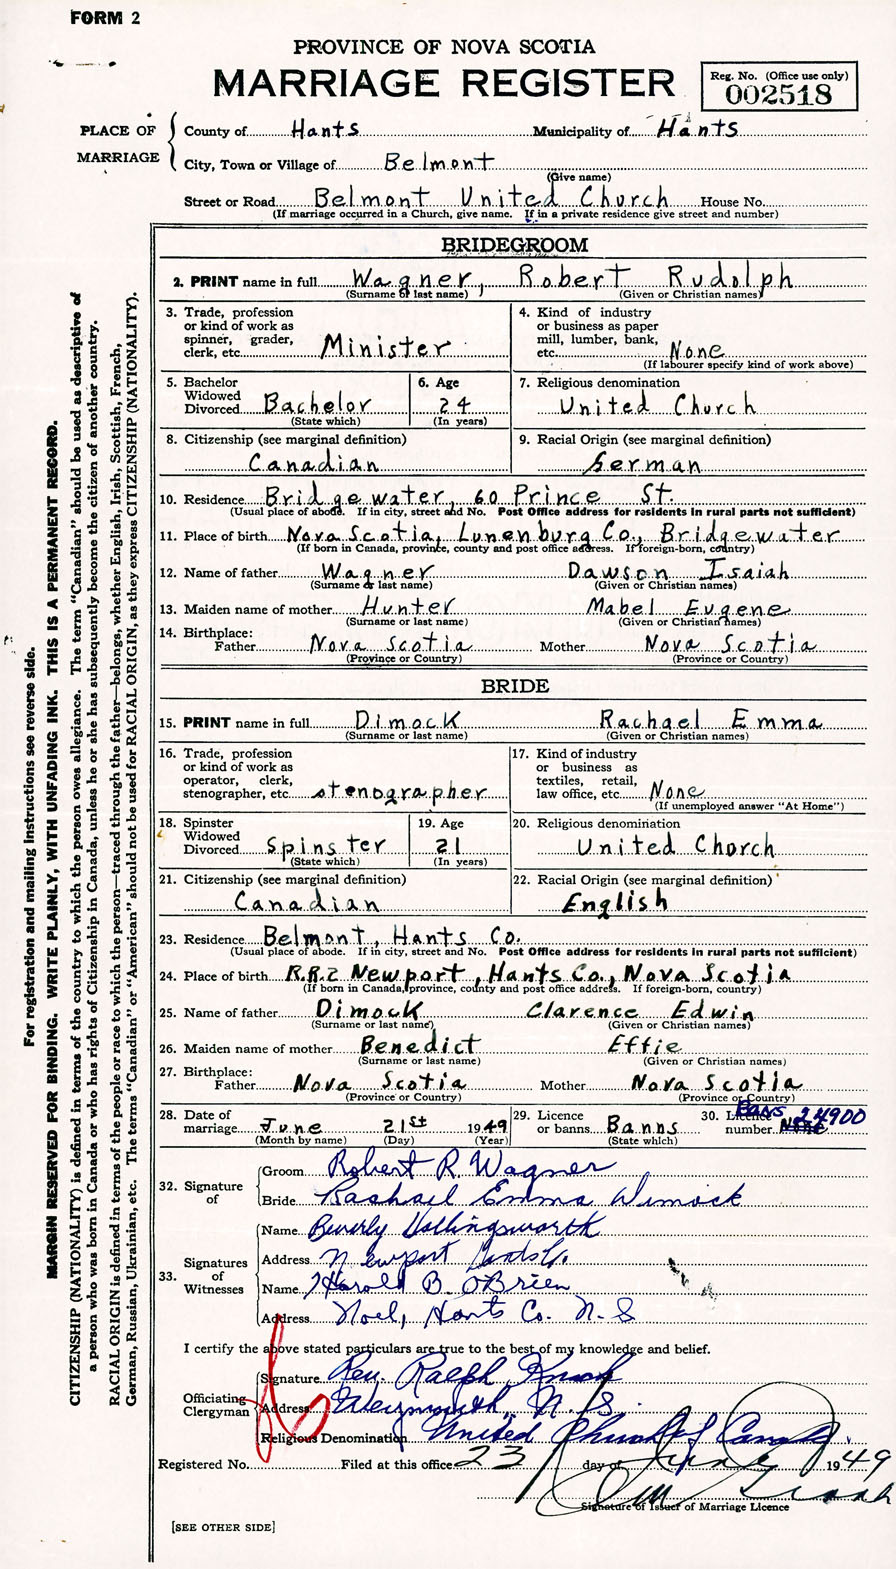 FORM 2
PROVINCE OF NOVA SCOTIA
MARRIAGE REGISTER
Reg. No. (Office use only)
002518
PLACE OF MARRIAGE
County of Hants Municipality of Hants
City, Town or Village of Belmont
(Give name)
Street or Road Belmont United Church House No.
(If marriage occurred in a Church, give name. If in a private residence give street and number)
BRIDEGROOM
2. PRINT name in full Wagner, Robert Rudolph
(Surname or last name) (Given or Christian names)
3. Trade, profession or kind of work as spinner, grader, clerk, etc. Minister
4. Kind of industry or business as paper mill, lumber, bank, etc. None
(If labourer specify kind of work above)
5. Bachelor Widowed Divorced Bachelor
(State which)
6. Age 24
(In years)
7. Religious denomination
United Church
8. Citizenship (see marginal definition)
Canadian
9. Racial Origin (see marginal definition)
German
10. Residence Bridgewater, 60 Prince St.
(Usual place of abode. If in city, street and No. Post Office address for residents in rural parts not sufficient)
11. Place of birth Nova Scotia, Lunenburg Co., Bridgewater
(If born in Canada, province, county and post office address. If foreign-born, country)
12. Name of father Wagner Dawson Isaiah
(Surname or last name) (Given or Christian names)
13. Maiden name of mother Hunter Mabel Eugene
(Surname or last name) (Given or Christian names)
14. Birthplace:
Father Nova Scotia Mother Nova Scotia
(Province or Country) (Province or Country)
BRIDE
15. PRINT name in full Dimock Rachael Emma
(Surname or last name) (Given or Christian names)
16. Trade, profession or kind of work as operator, clerk, stenographer, etc. stenographer
17. Kind of industry or business as textiles, retail, law office, etc. None
(If unemployed answer "At Home")
18. Spinster Widowed Divorced Spinster
(State which)
19. Age 21
(In years)
20. Religious denomination
United Church
21. Citizenship (see marginal definition)
Canadian
22. Racial Origin (see marginal definition)
English
23. Residence Belmont, Hants Co.
(Usual place of abode. If in city, street and No. Post Office address for residents in rural parts not sufficient)
24. Place of birth R.R.2 Newport, Hants Co., Nova Scotia
(If born in Canada, province, county and post office address. If foreign-born, country)
25. Name of father Dimock Clarence Edwin
(Surname or last name) (Given or Christian names)
26. Maiden name of mother Benedict Effie
(Surname or last name) (Given or Christian names)
27. Birthplace:
Father Nova Scotia Mother Nova Scotia
(Province or Country) (Province or Country)
28. Date of marriage June 21st 1949
(Month by name) (Day) (Year)
29. Licence or banns Banns
(State which)
30. Licence number None Bans 24900
32. Signature of
Groom Robert R. Wagner
Bride Rachael Emma Dimock
33. Signatures of Witnesses
Name Beverly Hollingsworth
Address Newport
Name Harold B. O'Brien
Address Noel, Hants Co. N.S
I certify the above stated particulars are true to the best of my knowledge and belief.
Officiating Clergyman
Signature Rev. Ralph
Address Weymouth, N.S.
Religious Denomination United Church of Canada
Registered No. Filed at this office 23 day of June 1949
Signature of Issuer of Marriage Licence
[SEE OTHER SIDE]
For registration and mailing instructions see reverse side.
MARGIN RESERVED FOR BINDING. WRITE PLAINLY, WITH UNFADING INK. THIS IS A PERMANENT RECORD.
CITIZENSHIP (NATIONALITY) is defined in terms of the country to which the person owes allegiance. The term "Canadian" should be used as descriptive of
a person who was born in Canada or who has rights of Citizenship in Canada, unless he or she has subsequently become the citizen of another country.
RACIAL ORIGIN is defined in terms of the people or race to which the person—traced through the father—belongs, whether English, Irish, Scottish, French,
German, Russian, Ukrainian, etc. The terms "Canadian" or "American" should not be used for RACIAL ORIGIN, as they express CITIZENSHIP (NATIONALITY).